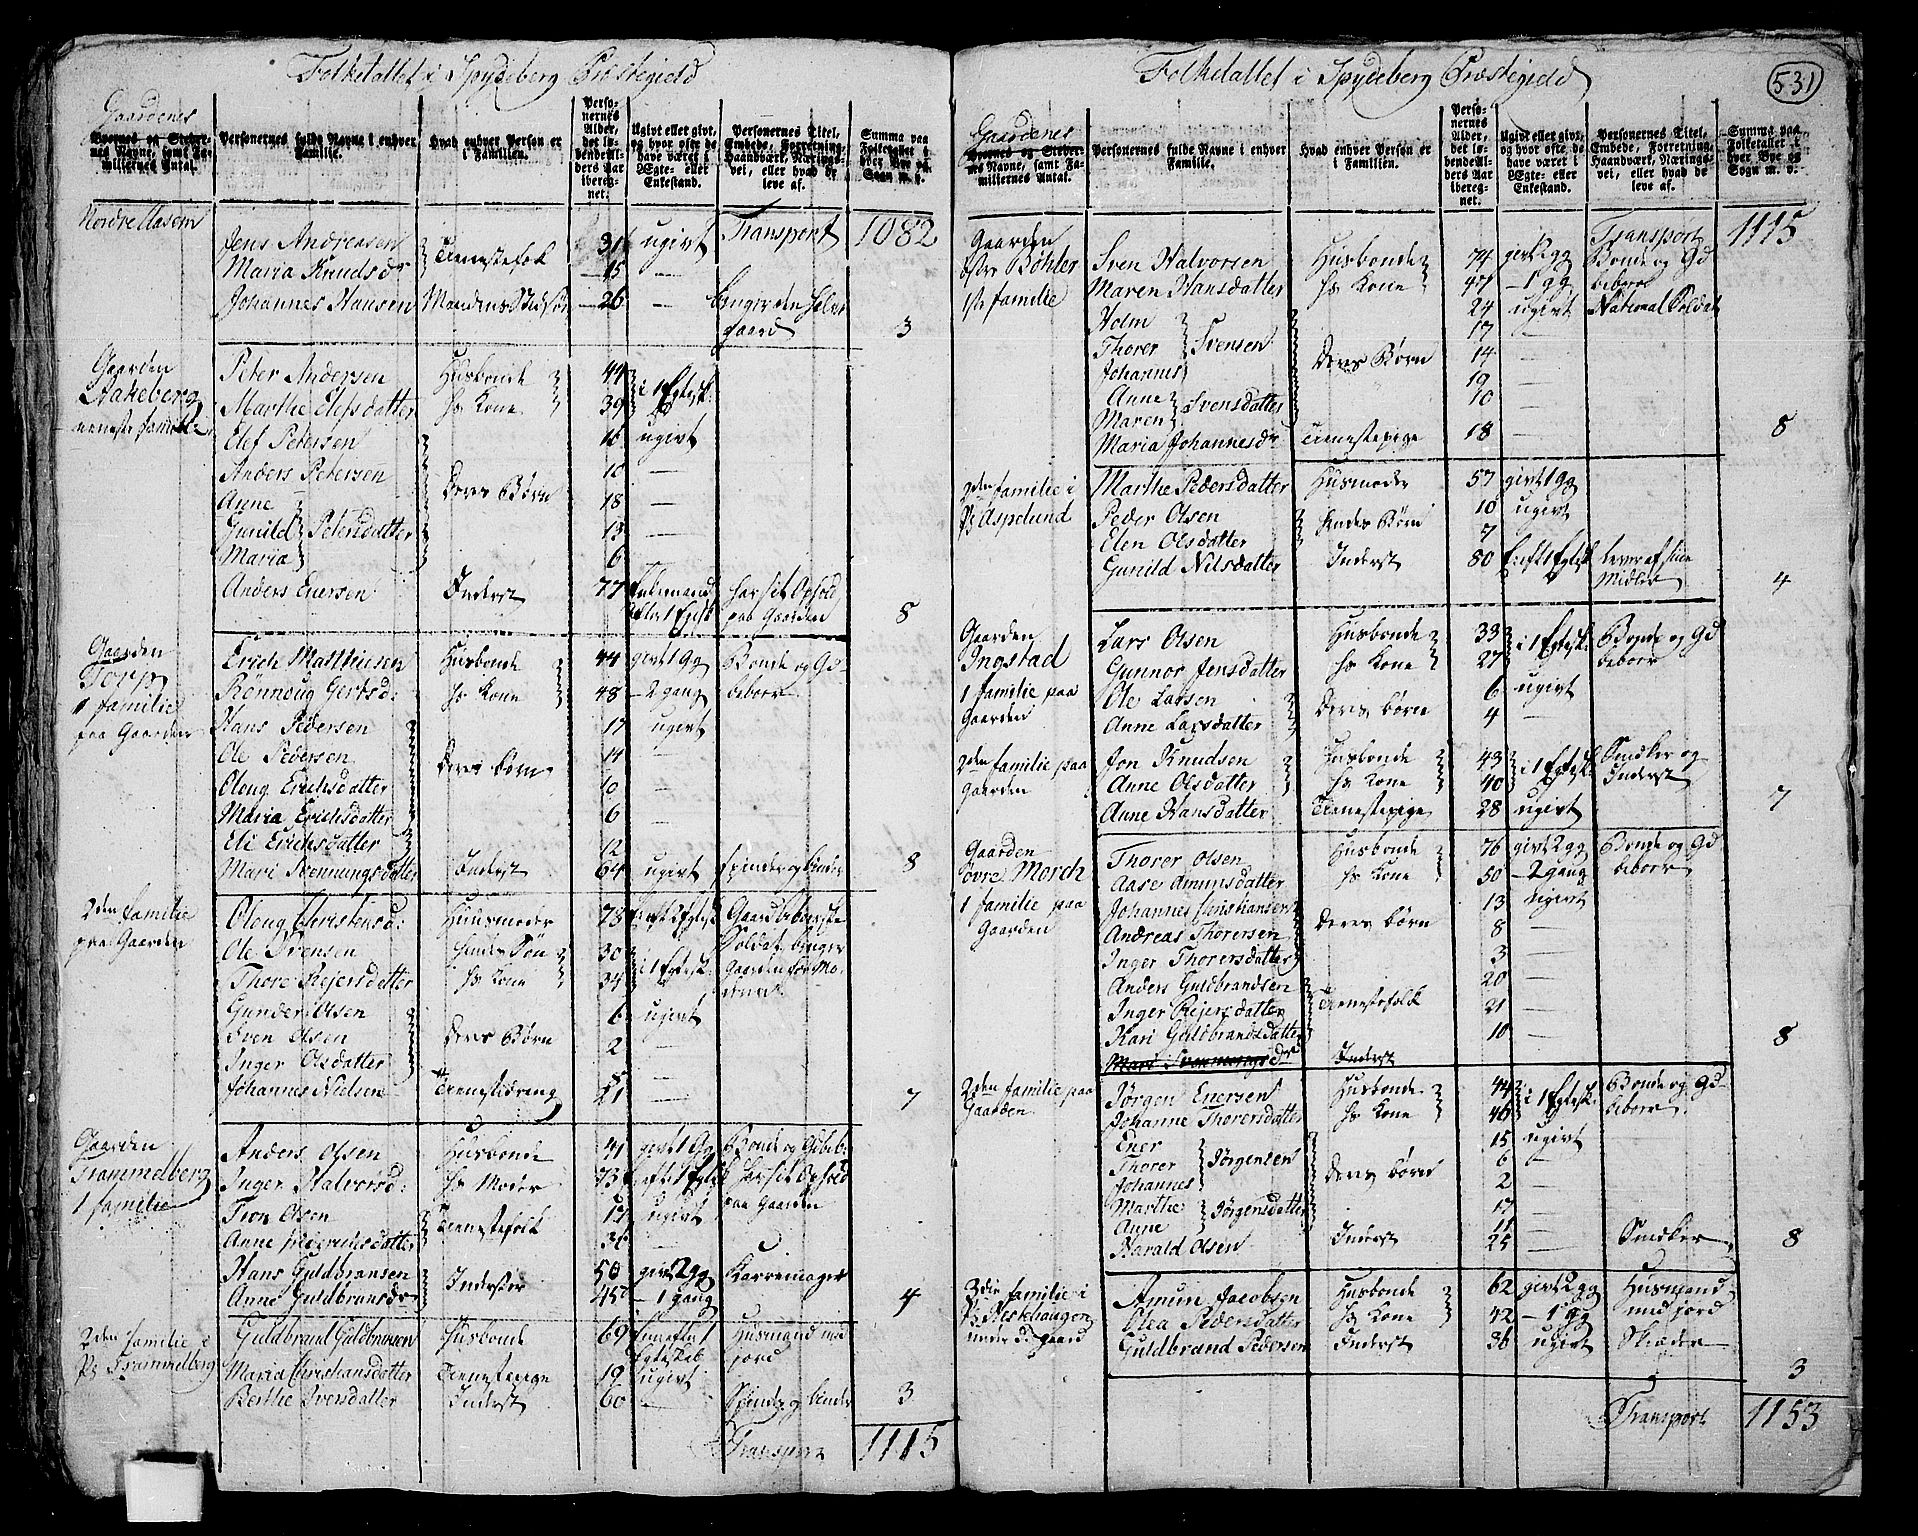 Folketallet i Spydeberg Præstegield
Gaardenes
Byernes og Stedernes Navne, samt Familiernes Antal.
Personernes fulde Navne i enhver Familie.
Hvad enhver Person er i Familien.
Personernes Alder, det løbende Alders Aar iberegnet.
Ugivt eller givt, og hvor ofte de have været i Ægte- eller Enkestand.
Personernes Titel, Embede, Forretning, Haandværk, Næringsvei, eller hvad de leve af.
Summa paa Folketallet i hver Bye og Sogn m. v.
Nordre Aasem Transport 1082
Jens Andreasen Tienestefolk 31 ugivt
Maria Knudsdr 15 —
Johannes Hansen Mandens Stedsøn 26 — bruger den halve gaard 3
Gaarden
Stakeberg
eeneste familie
Peter Andersen Husbonde 44 i 1 Egtesk:
Marthe Elefsdatter hs Kone 39
Elef Petersen 16 ugivt
Anders Petersen Deres Børn 10 —
Anne 18 —
Gunild Petersdatter 13 —
Maria 6
Anders Enersen Inderst 77 Enkemand efter 1 Egtsk har sit Ophold paa Gaarden 8
Gaarden
Torp
1 familie
paa Gaarden
Erich Matthiesen Husbonde 44 givt 1 Gg Bonde og Gd beboer
Rønnoug Gertsd: hs Kone 48 — 2 gang
Hans Pedersen 17 ugivt
Ole Pedersen Deres børn 14 —
Oloug Erichsdatter 10 —
Maria Erichsdatter 6 —
Eli Erichsdatter 12
Mari Svennungsdatter Inderst 64 ugivt spinder og binder 8
2den familie
paa Gaarden
Oloug Christensd: Huusmoder 78 Enke 2 Egtesk Gaardbeboerske
Ole Svensen hendes Søn 30 i 1 Egtesk: Soldat, bruger Gaarden for Moderen
Thore Rejersdatter hs Kone 34
Gunder Olsen 6 ugivt
Sven Olsen Deres Børn 2 —
Inger Olsdatter 5 —
Johannes Nielsen Tienestedreng 21 — 7
Gaarden
Trammelberg
1 familie
Anders Olsen Husbonde 41 givt 1 Gg Bonde og Gdbeb:
Inger Halvorsd: hs Moder 73 Enke efter 1 Egtesk har sit Ophold paa Gaarden
Tron Olsen Tienestefolk 17 ugivt
Anne Friderichsdatter 36 —
Hans Guldbransen Inderster 50 givt 2 gg Karremager
Anne Guldbransdr 45 — 1 gang 4
2den familie i
Ps Trammelberg
Guldbrand Guldbransen Husbonde 69 Enke efter 1 Egteskab Husmand med jord
Maria Christiansdatter Tienestepige 19 ugivt
Berthe Iversdatter Inderst 60 — Spinder og binder 3
Transport 1115
Folketallet i Spydeberg Præstegield
531
Gaardenes
Byernes og Stedernes Navne, samt Familiernes Antal.
Personernes fulde Navne i enhver Familie.
Hvad enhver Person er i Familien.
Personernes Alder, det løbende Alders Aar iberegnet.
Ugivt eller givt, og hvor ofte de have været i Ægte- eller Enkestand.
Personernes Titel, Embede, Forretning, Haandværk, Næringsvei, eller hvad de leve af.
Summa paa Folketallet i hver Bye og Sogn m. v.
Transport 1115
Gaarden
østre Bøhler
1ste familie
Sven Halvorsen Husbonde 74 givt 2 gg Bonde og Gd beboer
Maren Hansdatter hs Kone 47 — 1 gg
Holm 24 ugivt National Soldat
Thorer Svensen 17 —
Johannes Deres Børn 14 —
Anne 19 —
Maren Svensdatter 10 —
Maria Johannesdr Tienestepige 18 — 8
2den familie i
Ps Aspelund
Marthe Pedersdatter Husmoder 57 givt 1 gg
Peder Olsen hendes Børn 10 ugivt
Elen Olsdatter 7
Gunild Nilsdatter Inderst 80 Enke efter 1 Egtesk lever af sine Midler 4
Gaarden
Ingstad
1 familie paa
Gaarden
Lars Olsen Husbonde 33 i 1 Egtesk: Bonde og Gd beboer
Gunnor Jensdatter hs Kone 27
Ole Larsen Deres børn 6 ugivt
Anne Larsdatter 4 —
2den familie paa
Gaarden
Jon Knudsen Husbonde 43 i 1 Egtesk: Snedker og Inderst
Anne Olsdatter hs Kone 40
Anne Hansdatter Tienestepige 28 ugivt 7
Gaarden
øvre Mørch
1 familie paa
Gaarden
Thorer Olsen Husbonde 76 givt 2 gg Bonde og Gd beboer
Aase Amunsdatter hs Kone 50 — 2 gang
Johannes Christiansen 13 ugivt
Andreas Thorersen Deres børn 8 —
Inger Thorersdatter 3 —
Anders Guldbrandsen 20 —
Inger Rejersdatter Tienestefolk 21 —
Kari Guldbrandsdatter 10 — 8
Mari Svennungsdr Inderst
2den familie paa
Gaarden
Jørgen Enersen Husbonde 44 i 1 Egtesk: Bonde og Gd beboer
Johanne Thorersdatter hs Kone 46
Ener 15 ugivt
Thorer Jørgensen 6 —
Johannes Deres børn 2 —
Marthe 17 —
Anne Jørgensdatter 11 —
Harald Olsen Inderst 25 — Snedker 8
3die familie i
Ps Neskhaugen
under ds gaard
Amun Jacobsen Husbonde 62 givt 2 gg Husmand med jord
Olea Pedersdatter hs Kone 42 — 1 gg
Guldbrand Pedersen Inderst 36 ugivt Skræder 3
Transport 1153